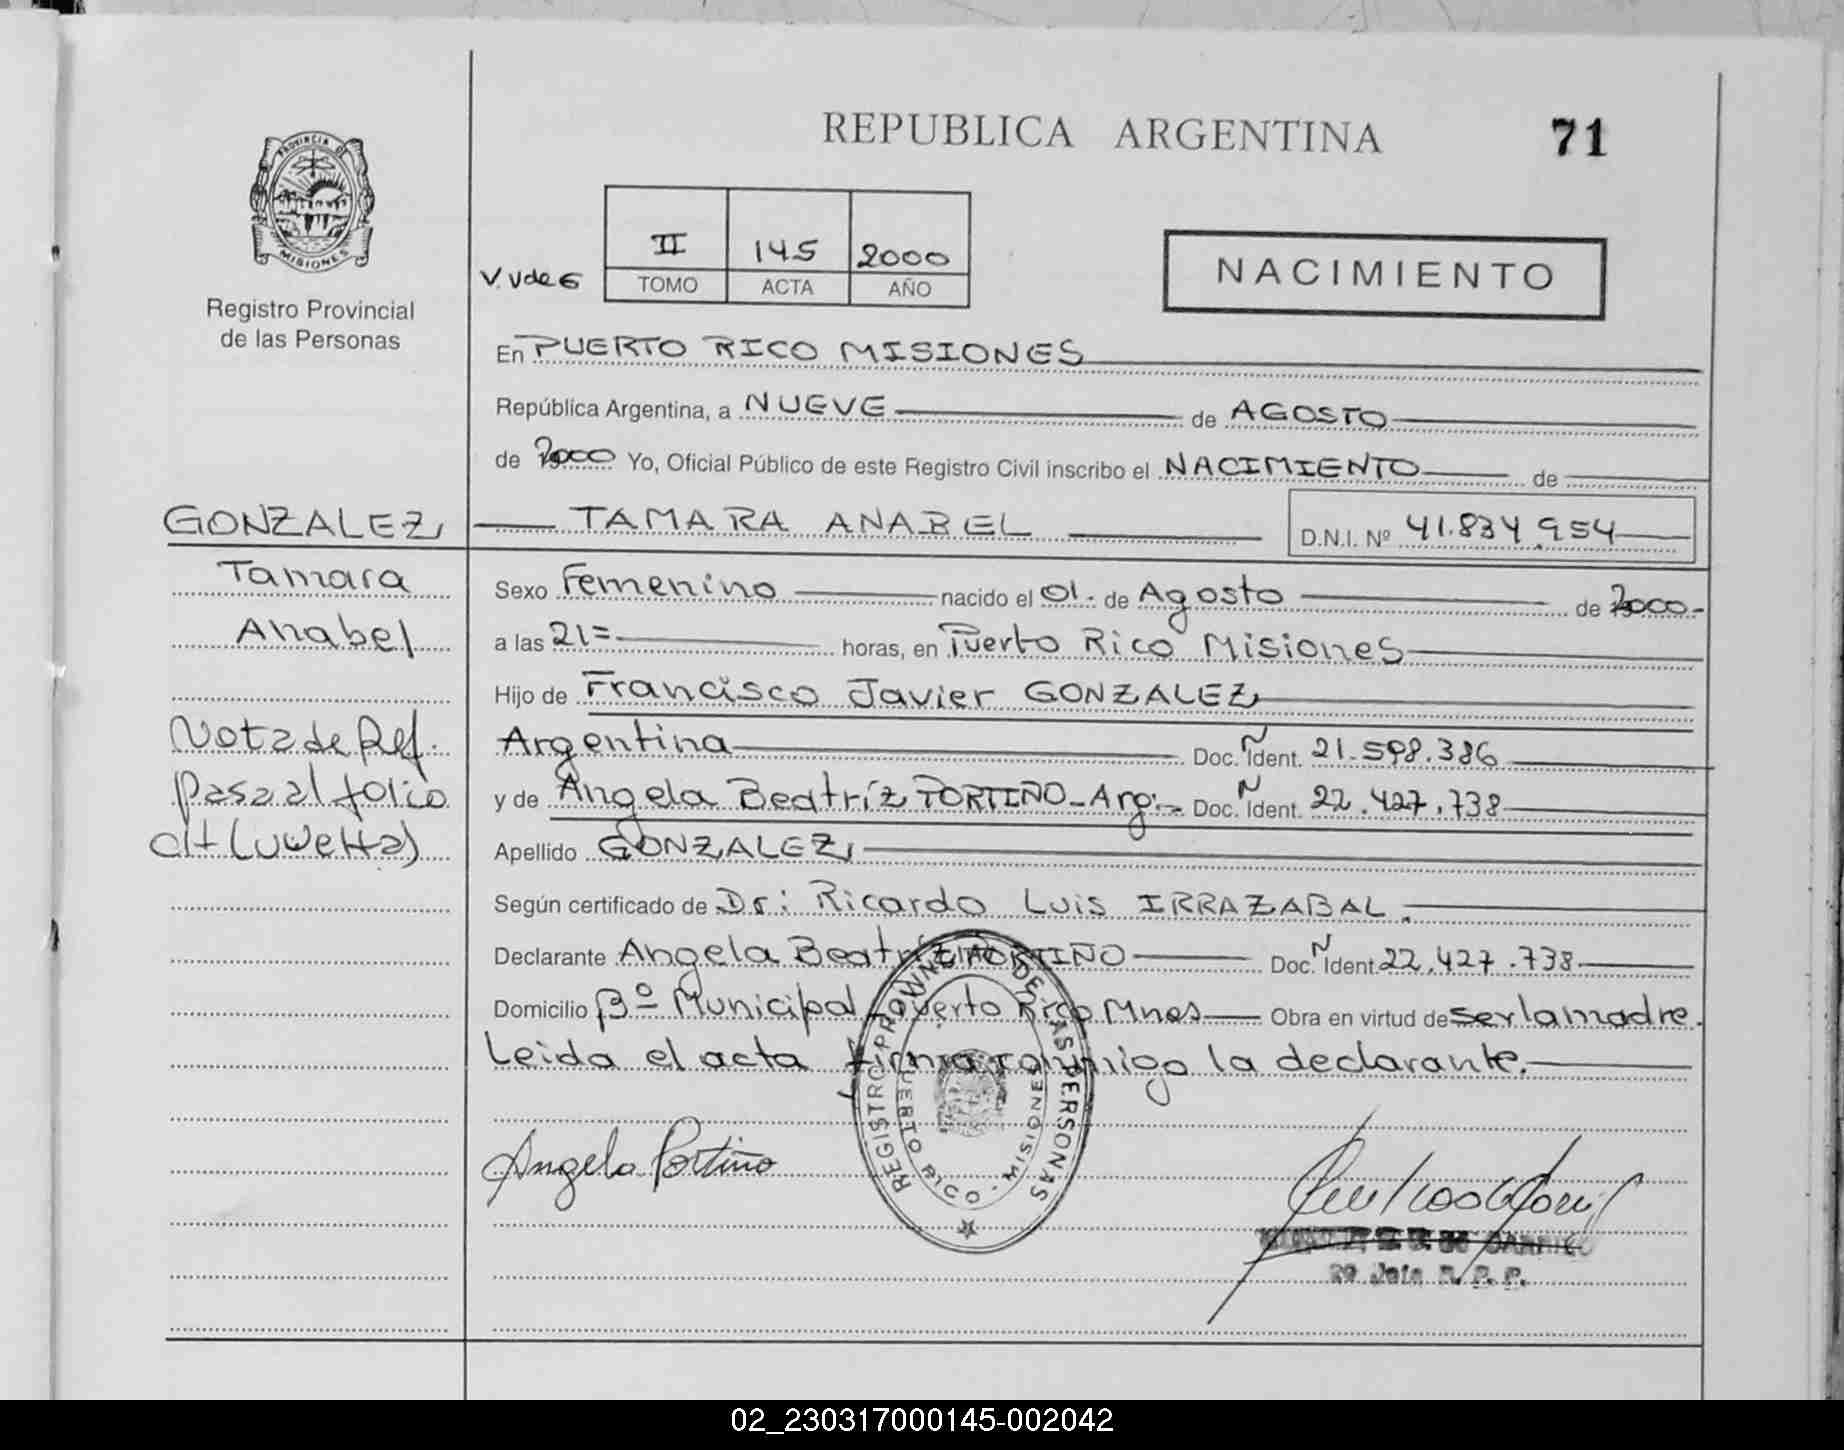 REPUBLICA ARGENTINA
71
PROVINCIA DE
MISIONES
Registro Provincial
de las Personas
II 145 2000
TOMO ACTA AÑO
NACIMIENTO
En PUERTO RICO MISIONES
República Argentina, a NUEVE de AGOSTO
de 2000 Yo, Oficial Público de este Registro Civil inscribo el NACIMIENTO de
GONZALEZ TAMARA ANABEL D.N.I. Nº 41.834.954
Tamara
Anabel
Sexo Femenino nacido el 01. de Agosto de 2000-
a las 21= horas, en Puerto Rico Misiones
Hijo de Francisco Javier GONZALEZ
Argentina Doc. N Ident. 21.598.386
y de Angela Beatríz PORTIÑO-Arg.- Doc. N Ident. 22.427.738
Apellido GONZALEZ
Según certificado de Dr: Ricardo Luis IRRAZABAL.
Declarante Angela Beatríz PORTIÑO Doc. N Ident. 22.427.738
Domicilio Bº Municipal Puerto Rico Mnes Obra en virtud de ser la madre.
Leida el acta firma conmigo la declarante.
Nota de Ref.
pasa al folio
Angela Portiño
REGISTRO PROVINCIAL DE LAS PERSONAS
PUERTO RICO - MISIONES
02_230317000145-002042